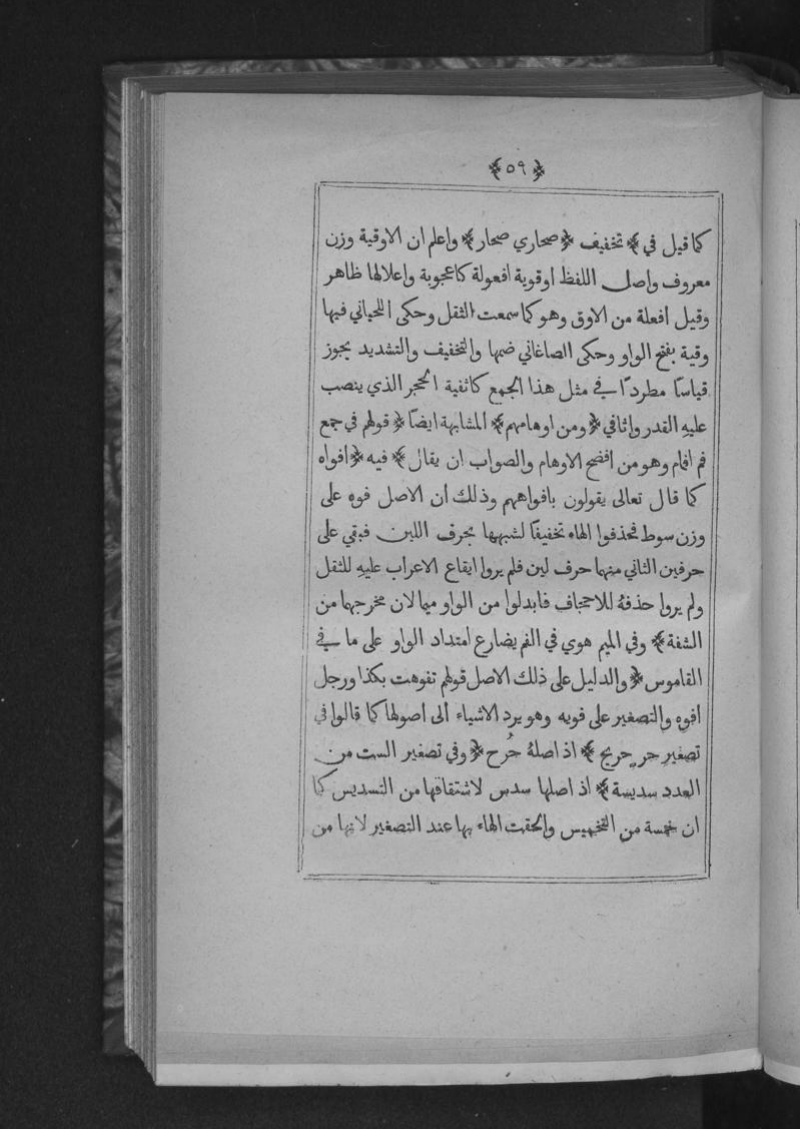 ﴿٥٩﴾
كما قيل في ﴾ تخفيف ﴿ صحاري صحار ﴾ واعلم ان الاوقية وزن
معروف واصل اللفظ اوقوية افعولة كاعجوبة واعلالها ظاهر
وقيل افعلة من الاوق وهو كما سمعت الثقل وحكى اللحياني فيها
وقية بفتح الواو وحكى الصاغاني ضمها والتخفيف والتشديد يجوز
قياسًا مطردًا في مثل هذا الجمع كاثفية الحجر الذي ينصب
عليهِ القدر واثافي ﴿ ومن اوهامهم ﴾ المشابهة ايضًا ﴿ قولهم في جمع
فم افمام وهو من افضح الاوهام والصواب ان يقال ﴾ فيه ﴿ افواه
كما قال تعالى يقولون بافواههم وذلك ان الاصل فوه على
وزن سوط فحذفوا الهاء تخفيفًا لشبهها بحرف اللين فبقي على
حرفين الثاني منهما حرف لين فلم يروا ايقاع الاعراب عليهِ للثقل
ولم يروا حذفهُ للاحجاف فابدلوا من الواو ميما لان مخرجهما من
الشفة ﴾ وفي الميم هوي في الفم يضارع امتداد الواو على ما في
القاموس ﴿ والدليل على ذلك الاصل قولهم تفوهت بكذا ورجل
افوه والتصغير على فويه وهو يرد الاشياء الى اصولها كما قالوا في
تصغير حر حريج ﴾ اذ اصلهُ حُرح ﴿ وفي تصغير الست من
العدد سديسة ﴾ اذ اصلها سدس لاشتقاقها من التسديس كما
ان خمسة من التخميس والحقت الهاء بها عند التصغير لانها من